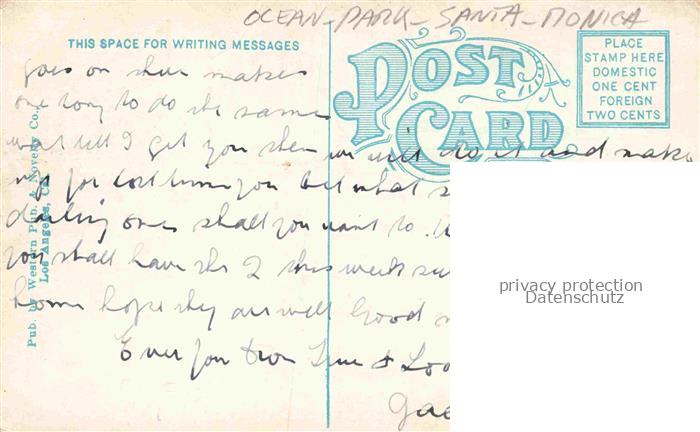 OCEAN-PARK-SANTA-MONICA
THIS SPACE FOR WRITING MESSAGES
POST CARD
PLACE
STAMP HERE
DOMESTIC
ONE CENT
FOREIGN
TWO CENTS
goes on she makes
one long to do the same
wait till I get you then we will do it and make
up for lost time you bet what
darling ones shall you want to
you shall have the 2 this week
home hope they are well Good
Ever your
Pub. by Western Pub. & Novelty Co.,
Los Angeles, Cal.
privacy protection
Datenschutz